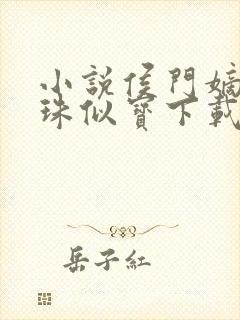 小說侯門嫡
珠似寶下載
岳子紅